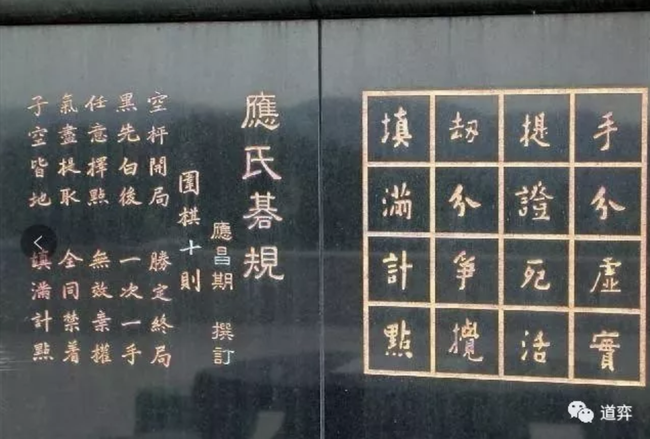 手分虛實
提證死活
劫分爭攪
填滿計點
應氏碁規
應昌期 撰訂
圍棋十則
空枰開局 勝定終局
黑先白後 一次一手
任意擇點 無效棄權
氣盡提取 全同禁着
子空皆地 填滿計點
道弈